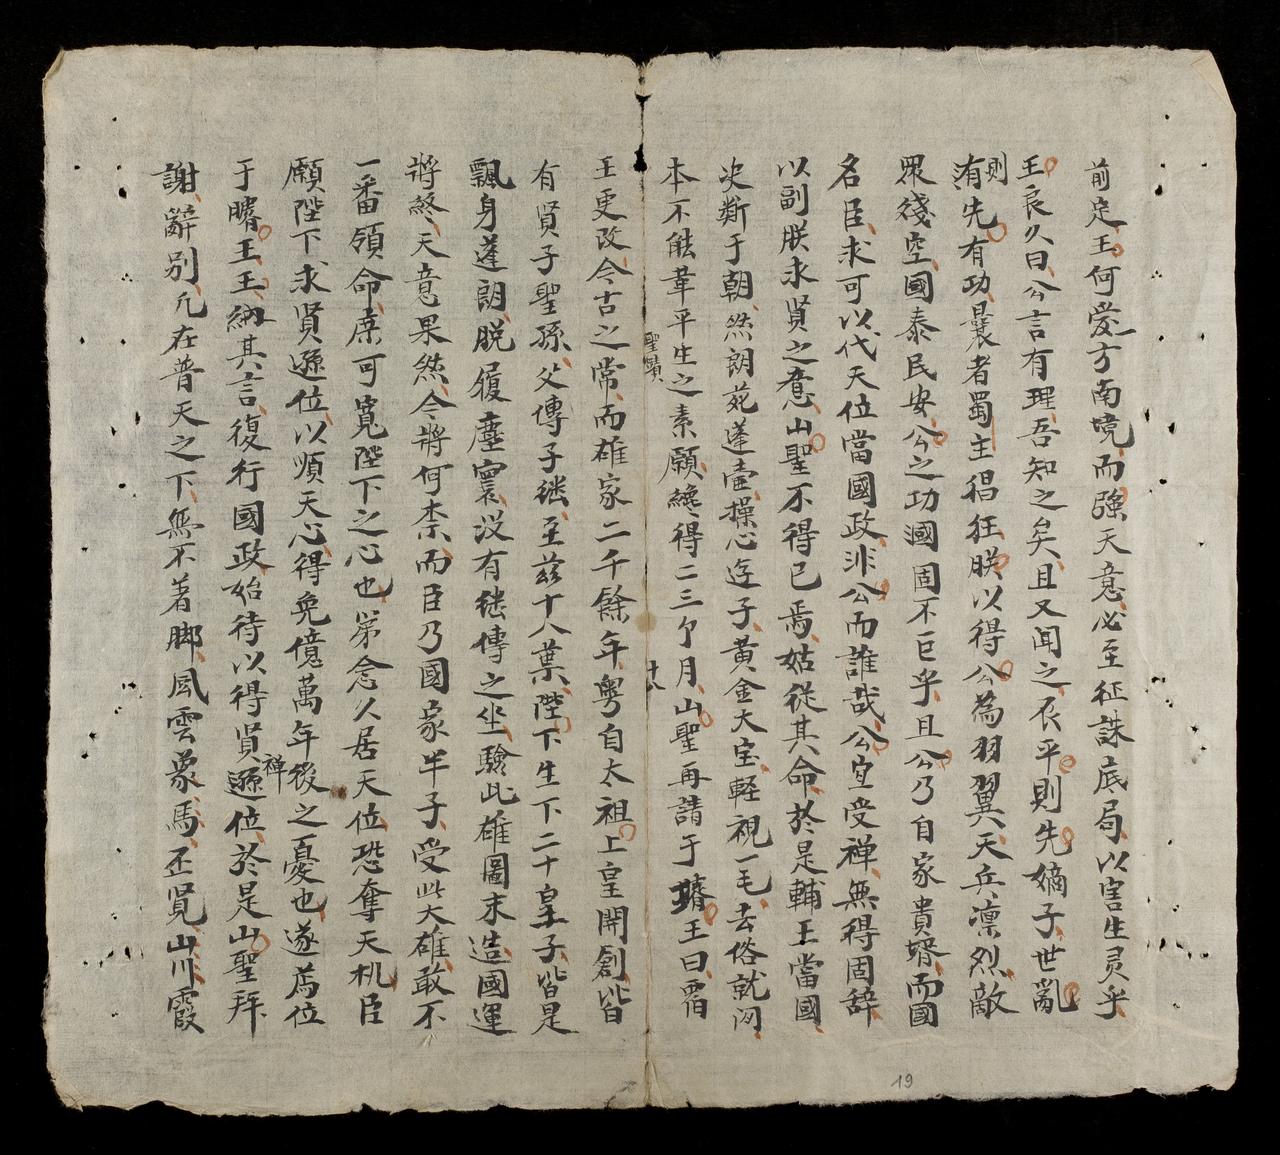 前定王何愛方南境而強天意必至征誅底局以害生灵乎
王良久曰公言有理吾知之矣且又闻之衣平則先嫡子世亂
則
洧先有功曩者蜀主猖狂朕以得公為羽翼天兵凛烈敵
眾殘空國泰民安公之功國固不巨乎且公乃自家貴壻而國
名臣求可以代天位當國政非公而誰哉公宜受禅無得固辞
以副朕求賢之意山聖不得已焉姑從其命於是輔王當國
決断于朝然朗苑蓬壺操心迄子黄金大宝軽視一毛去俗就闲
本不能辜平生之素願纔得二三个月山聖再請于壻王曰
聖蹟
十八
王更改今古之常而雄家二千餘年粵自太祖上皇開創皆
有賢子聖孫父傳子継至兹十八葉陛下生下二十皇子皆是
飄身蓬朗脱履塵寰没有継傳之坐驗此雄圖末造國運
將終天意果然今將何柰而臣乃國家半子受此大雄敢不
一番領命庶可寬陛下之心也第念久居天位恐奪天机臣
願陛下求賢遜位以順天心得免億萬年後之憂也遂為位
禅
于睶王王納其言復行國政始待以得賢遜位於是山聖拜
謝辭別凡在普天之下無不着脚風雲象馬丕覓山川霞
19